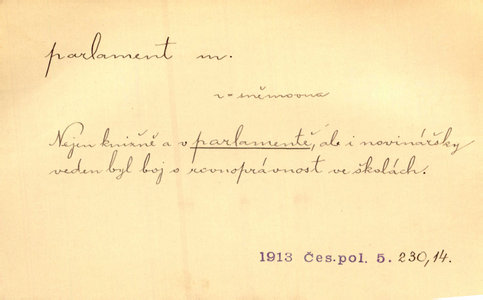 parlament m.
v = sněmovna
Nejen knižně a v parlamentě, ale i novinářsky
veden byl boj o rovnoprávnost ve školách.
1913 Čes. pol. 5. 230,14.